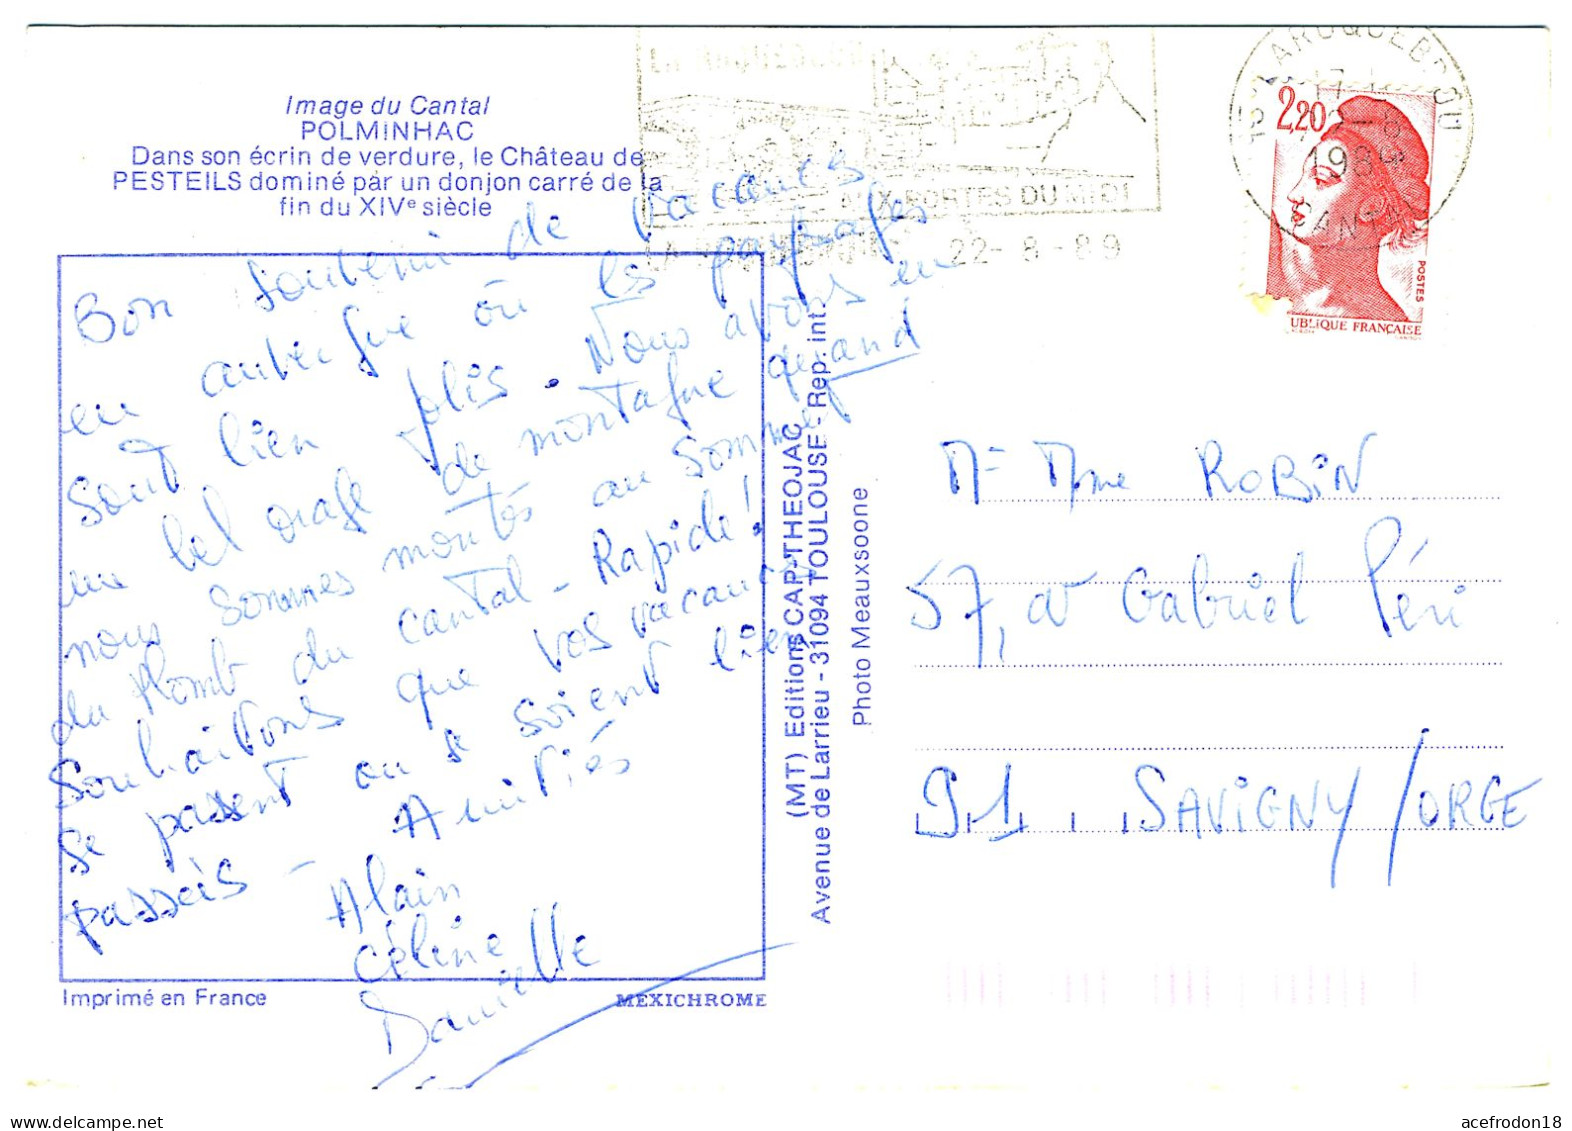 Image du Cantal
POLMINHAC
Dans son écrin de verdure, le Château de
PESTEILS dominé par un donjon carré de la
fin du XIVe siècle
Bon souvenir de vacances
en auvergne où les paysages
sont bien jolis. Nous avons eu
un bel orage de montagne quand
nous sommes montés au sommet
du Plomb du cantal - Rapide!
Souhaitons que vos vacances
se passent ou se soient bien
passeés - Amitiés
Alain
Céline
Danielle
Imprimé en France
MEXICHROME
(MT) Editions CAP-THEOJAC
Avenue de Larrieu - 31094 TOULOUSE - Rep. int.
Photo Meauxsoone
AUX PORTES DU MIDI
22-8-89
LAROQUEBROU
17 H
1989
CANTAL
2,20
POSTES
UBLIQUE FRANÇAISE
Mr Mme ROBIN
57, av Gabriel Péri
91 SAVIGNY/ORGE
acefrodon18